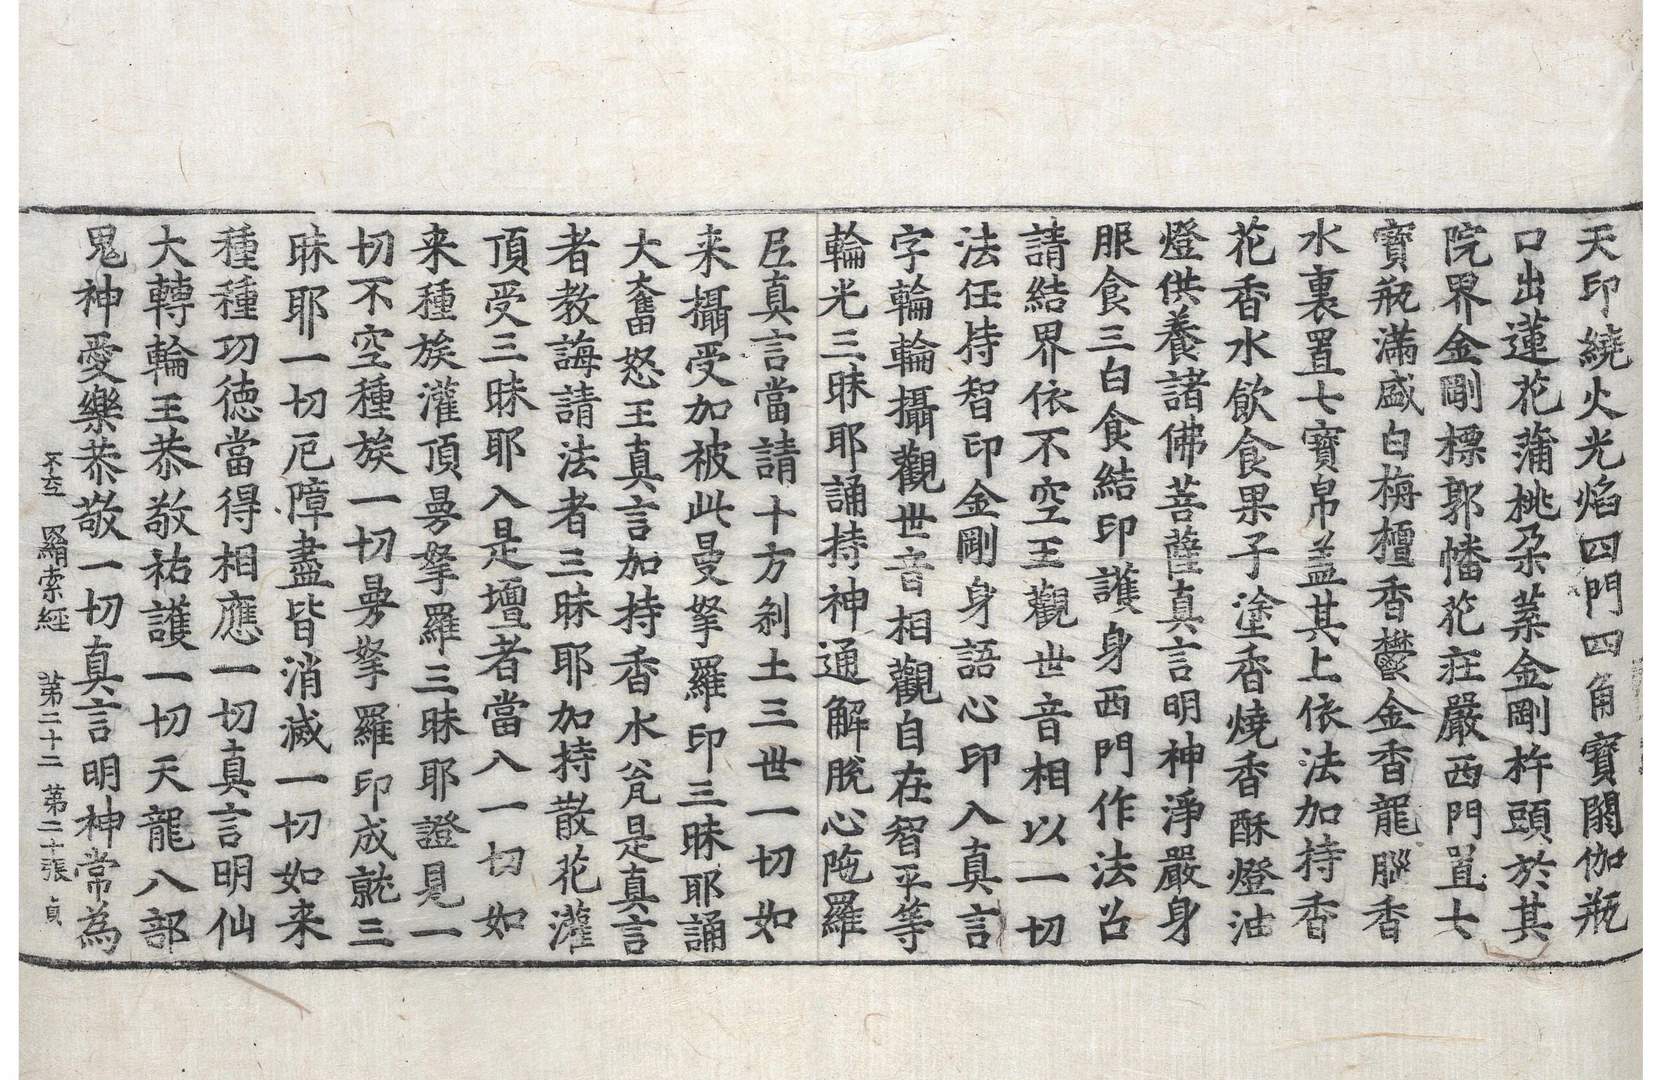 天印繞火光焰四門四角寶閼伽瓶
口出蓮花蒲桃朶菓金剛杵頭於其
院界金剛標郭幡花莊嚴西門置七
寶瓶滿盛白栴檀香欝金香龍腦香
水裏置七寶帛盖其上依法加持香
花香水飮食果子塗香燒香酥燈油
燈供養諸佛菩薩真言明神淨嚴身
服食三白食結印護身西門作法召
請結界依不空王觀世音相以一切
法任持智印金剛身語心印入真言
字輪輪攝觀世音相觀自在智平等
輪光三昧耶誦持神通解脫心陁羅
尼真言當請十方刹土三世一切如
来攝受加被此曼拏羅印三昧耶誦
大奮怒王真言加持香水瓮是真言
者教誨請法者三昧耶加持散花灌
頂受三昧耶入是壇者當入一切如
来種族灌頂曼拏羅三昧耶證見一
切不空種族一切曼拏羅印成就三
昧耶一切厄障盡皆消滅一切如来
種種功德當得相應一切真言明仙
大轉輪王恭敬祐護一切天龍八部
鬼神愛樂恭敬一切真言明神常為
不空 羂索經 第二十二 第二十張 貞